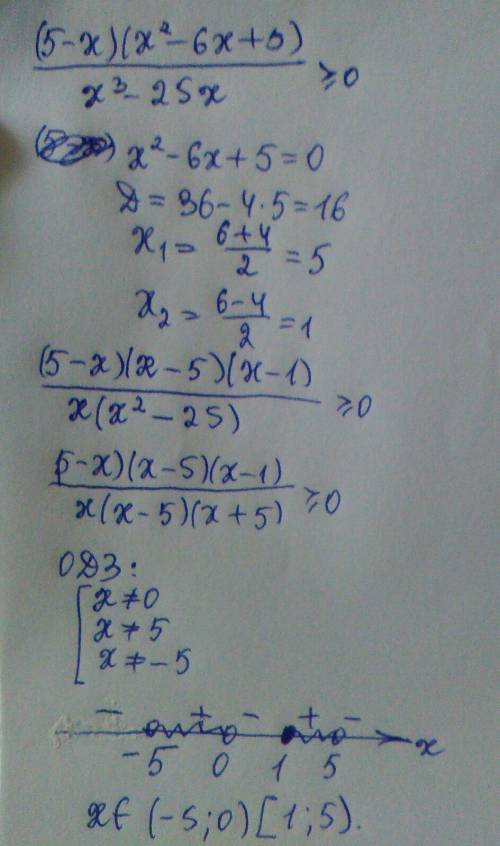 (5-x)(x²-6x+5)
x³-25x
≥0
x²-6x+5=0
Д=36-4·5=16
x₁=(6+4)/2=5
x₂=(6-4)/2=1
(5-x)(x-5)(x-1)
x(x²-25)
≥0
5-x)(x-5)(x-1)
x(x-5)(x+5)
≥0
ОДЗ:
[x≠0
x≠5
x≠-5
- + - + -
-5 0 1 5 x
x∈(-5;0)[1;5).